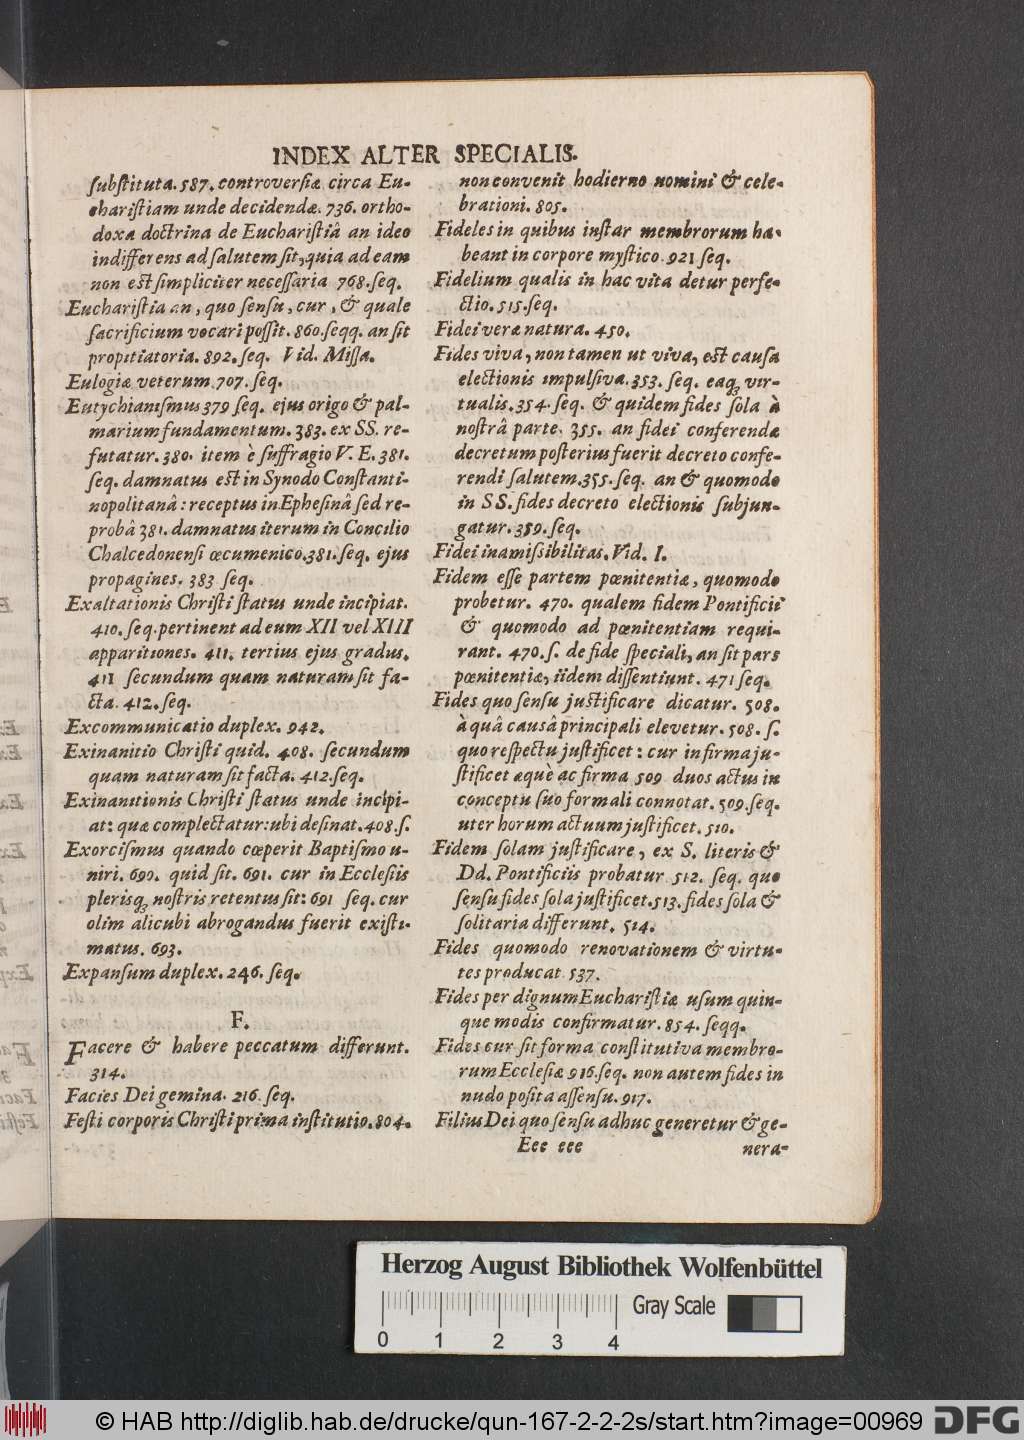 INDEX ALTER SPECIALIS.
ſubſtituta. 587. controverſiæ circa Eu-
chariſtiam unde decidendæ. 736. ortho-
doxa doctrina de Euchariſtiâ an ideo
indifferens ad ſalutem ſit, quia ad eam
non eſt ſimpliciter neceſſaria 768. ſeq.
Euchariſtia an, quo ſenſu, cur, & quale
ſacrificium vocari poſſit. 860. ſeqq. an ſit
propitiatoria. 892. ſeq. Vid. Miſſa.
Eulogiæ veterum. 707. ſeq.
Eutychianiſmus 379 ſeq. ejus origo & pal-
marium fundamentum. 383. ex SS. re-
futatur. 380. item è ſuffragio V. E. 381.
ſeq. damnatus eſt in Synodo Conſtanti-
nopolitanâ: receptus in Epheſinâ ſed re-
probâ 381. damnatus iterum in Concilio
Chalcedonenſi œcumenico. 381. ſeq. ejus
propagines. 383 ſeq.
Exaltationis Chriſti ſtatus unde incipiat.
410. ſeq. pertinent ad eum XII vel XIII
apparitiones. 411. tertius ejus gradus.
411 ſecundum quam naturam ſit fa-
cta. 412. ſeq.
Excommunicatio duplex. 942.
Exinanitio Chriſti quid. 408. ſecundum
quam naturam ſit facta. 412. ſeq.
Exinanitionis Chriſti ſtatus unde incipi-
at: quæ complectatur: ubi deſinat. 408. ſ.
Exorciſmus quando cœperit Baptiſmo u-
niri. 690. quid ſit. 691. cur in Eccleſiis
plerisq; noſtris retentus ſit: 691 ſeq. cur
olim alicubi abrogandus fuerit exiſti-
matus. 693.
Expanſum duplex. 246. ſeq.
F.
Facere & habere peccatum differunt.
314.
Facies Dei gemina. 216. ſeq.
Feſti corporis Chriſti prima inſtitutio. 804.
non convenit hodierno nomini & cele-
brationi. 805.
Fideles in quibus inſtar membrorum ha-
beant in corpore myſtico. 921 ſeq.
Fidelium qualis in hac vita detur perfe-
ctio. 515. ſeq.
Fidei veræ natura. 450.
Fides viva, non tamen ut viva, eſt cauſa
electionis impulſiva. 353. ſeq. eaq; vir-
tualis. 354. ſeq. & quidem fides ſola à
noſtrâ parte. 355. an fidei conferendæ
decretum poſterius fuerit decreto confe-
rendi ſalutem. 355. ſeq. an & quomodo
in SS. fides decreto electionis ſubjun-
gatur. 359. ſeq.
Fidei inamiſſibilitas. Vid. I.
Fidem eſſe partem pœnitentiæ, quomodo
probetur. 470. qualem fidem Pontificii
& quomodo ad pœnitentiam requi-
rant. 470. ſ. de fide ſpeciali, an ſit pars
pœnitentiæ, iidem diſſentiunt. 471 ſeq.
Fides quo ſenſu juſtificare dicatur. 508.
à quâ cauſâ principali elevetur. 508. ſ.
quo reſpectu juſtificet: cur infirma ju-
ſtificet æquè ac firma 509 duos actus in
conceptu ſuo formali connotat. 509. ſeq.
uter horum actuum juſtificet. 510.
Fidem ſolam juſtificare, ex S. literis &
Dd. Pontificiis probatur 512. ſeq. quo
ſenſu fides ſola juſtificet. 513. fides ſola &
ſolitaria differunt. 514.
Fides quomodo renovationem & virtu-
tes producat 537.
Fides per dignum Euchariſtiæ uſum quin-
que modis confirmatur. 854. ſeqq.
Fides cur ſit forma conſtitutiva membro-
rum Eccleſiæ 916. ſeq. non autem fides in
nudo poſita aſſenſu. 917.
Filius Dei quo ſenſu adhuc generetur & ge-
Eee eee nera-
Herzog August Bibliothek Wolfenbüttel
Gray Scale
0 1 2 3 4
© HAB http://diglib.hab.de/drucke/qun-167-2-2-2s/start.htm?image=00969 DFG